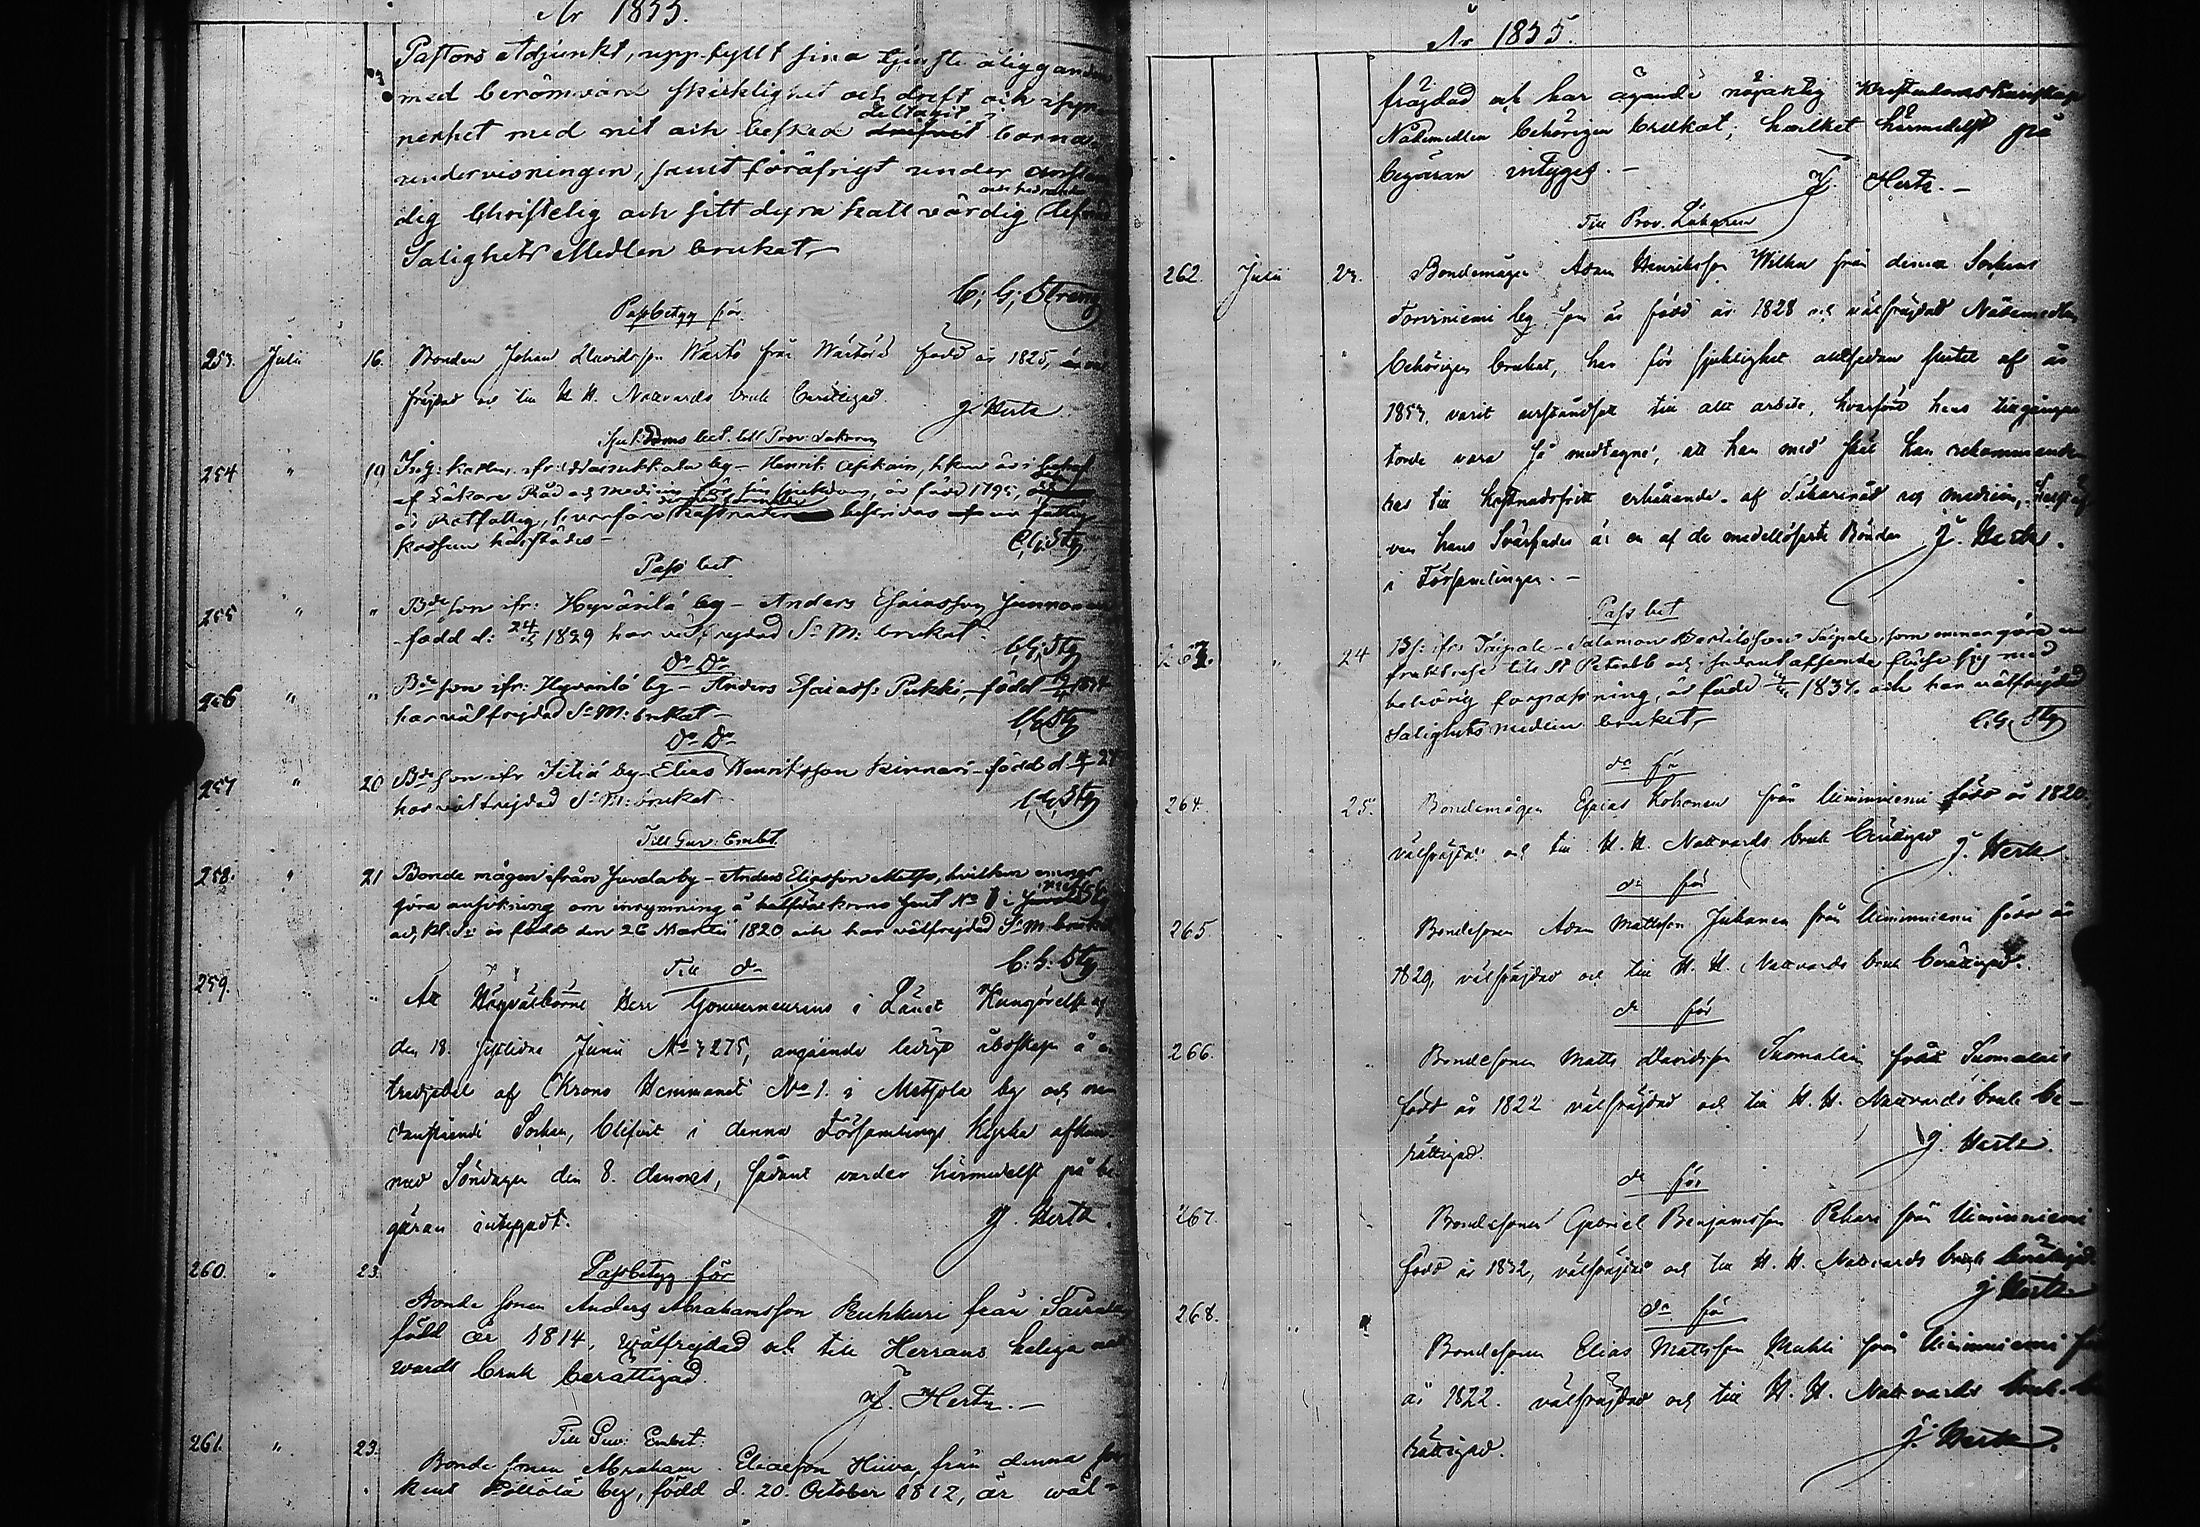 År 1855.
Pastors Adjunkt, uppfyllt sina tjenste åligganden
med berömvärd skicklighet och drift och i syn-
nerhet med nit och besked deltagit barna-
undervisningen, samt föröfrigt under
dig Christelig och sitt dyra kall värdig
Salighets Medlen brukat,
C; G; Streng
Passbetyg för
253. Julii 16. Bonden Johan Davidsson Wärtö från Wärtö född år 1825,
fräjdad och till H. H. Nattvards bruk berättigad.
J. Hertz
bet. till Prov: Läkaren
254 " 19 by - Henrik
af Läkare Råd och Medicin för sin sjukdom, är född 1795,
är Utfattig, hvarföre kostnaden bestridas fattig
kassan härstädes -
C.G.Stg
Pass bet
255 " " Bde son ifr: Hyväsilä by - Anders Esaiasson
född d: 24/5 1829 har välfrejdad S: M: brukat -
C,G;Stg
Do Do
256 " " Bde son ifr: Hyväsilä by - Anders Esaiass: Pukki, född
har välfrejdad S: M: brukat -
C,G;Stg
Do Do
257 " 20 Bde son ifr by - Elias Henriksson Kinnari - född d
har välfrejdad S: M: brukat -
C,G;Stg
Till Guv: Embt.
258. " 21 Bonde mågen ifrån Juvola by - Anders Eliasson hvilken ämnar
göra ansökning om inrymning å Krono Hemt No 1 i
är född den 26 Martii 1820 och har välfrejdad S: M: brukat
C: G: Stg
Till do
259. " Att Högvälborne Herr Gouverneurens i Länet Kungörelse af
den 18. sistlidne Junii No 3275, angående ledigt åboskap å en
tredjedel af Krono Hemmanet No 1. i Metsola by och
Sochen, blifvit i denna Församlings Kyrka afkun-
nad Söndagen den 8. dennes, sådant varder härmedelst på be-
gäran intygadt.
J. Hertz.
260. " 23. Passbetyg för
Bonde sonen Anders Abrahamsson Puhkuri från
född år 1814, wälfrejdad och till Herrans heliga natt
wards bruk berättigad.
J. Hertz.-
Till Guv: Embet:
261. " 23. Bonde sonen Abraham Eliaesson Hiiva, från denna
kens by, född d. 20. October 1812, är wäl-
År 1855.
fräjdad och har ägande nöjaktig Kristendomskunskap
Nådemedlen behörigen brukat; hvilket härmedelst på
begäran intygas. -
J. Hertz. -
Till Prov. Läkaren
262. Julii 23. Bondemågen Adam Henriksson Wilku från denna Sockens
Torvniemi by, som är född år 1828 och välfräjdad Nådemedlen
behörigen brukat, har för sjuklighet alltsedan slutet af år
1853, varit urståndsatt till allt arbete, hvarföre hans tillgångar
torde vara så medtagne, att han med skäl kan rekommanderas
till kostnadsfritt erhållande af Läkareråd och medicin,
ven hans Svärfader är en af de medellösaste Bönder J. Hertz.
i Församlingen. -
Pass bet
263. " 24 ifr: Taipale - Salamon Taipale, som ämnar göra en
fraktresa till St Petersb och i sådant afseende förse sig med
behörig förpassning, är född 1837. och har välfrejdad
Salighets medlen brukat,
C.G. Stg
do för
264. " 25. Bondemågen Esaias Kohonen från Uiminniemi född år 1820.
välfräjdad och till H. H. Nattvards bruk berättigad J. Hertz
do för
265. " " Bondesonen Adam Mattsson Juhanen från Uiminniemi född år
1829, välfräjdad och till H. H. Nattvards bruk berättigad.
do för
266. Bondesonen Matts Davidsson Suomalain från Suomalais
född år 1822 välfräjdad och till H. H. Nattvards bruk be-
rättigad. J. Hertz.
do för
267. " " Bondesonen Gabriel Benjamsson Pekari från Uiminniemi
född år 1832, välfräjdad och till H. H. Nattvards bruk berättigad
J Hertz
do för
268. " " Bondesonen Elias Mattsson Muhli från Uiminniemi
år 1822. välfräjdad och till H. H. Nattvards bruk be
rättigad. J. Hertz.